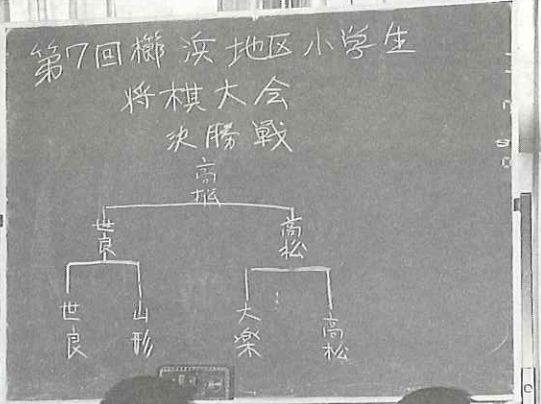 第7回櫛浜地区小学生
将棋大会
決勝戦
高松
世良
高松
世良
山形
大楽
高松